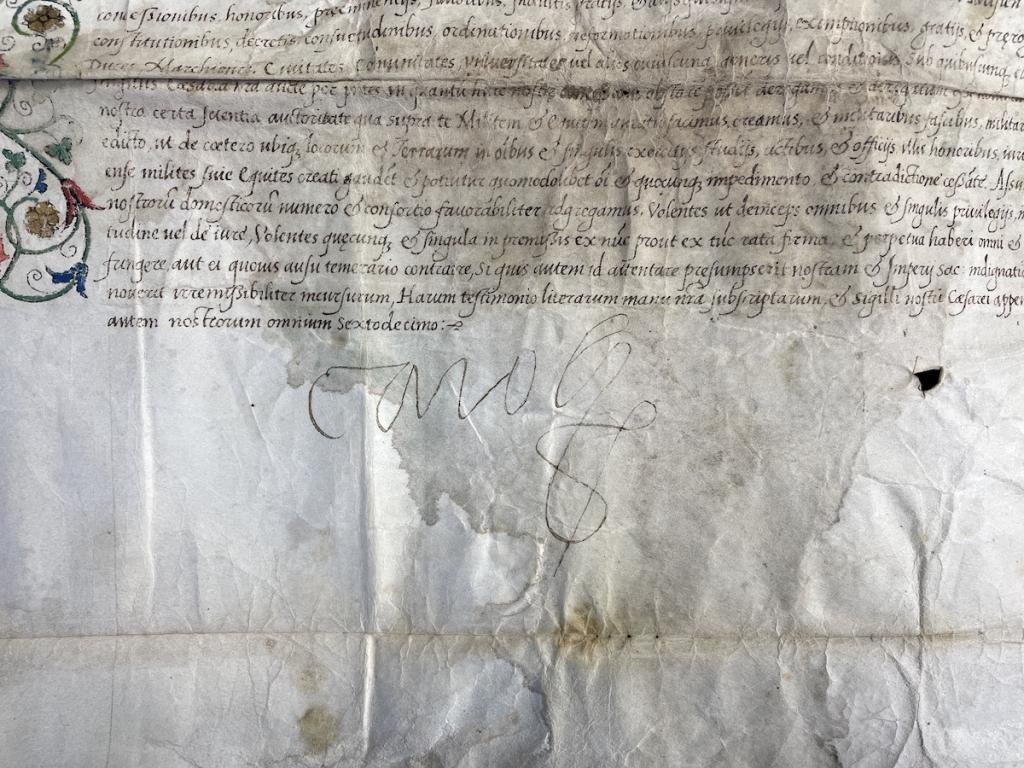 concessionibus, honoribus, preeminentijs, favoribus, indultis, gratijs,
constitutionibus, decretis, consuetudinibus, ordinationibus, reformationibus, privilegijs, exemptionibus, gratijs, & prero
Duces, Marchiones, Civitates, Comunitates, universitates vel alios cuiuscunq generis vel conditionis sub quibuscunq
nostra certa scientia auctoritate qua supra te Militem & Equitem auratum facimus, creamus, & militaribus fascibus, militar
edicto, ut de cætero ubiq locorum & Terrarum in oibus & singulis exercitijs studijs, actibus, & officijs illis honoribus, iure
ense milites sive equites creati gaudet & potiutur quomodolibet oi & quocunq impedimento & contradictione ceßate. Assu
nostrorū domesticorū numero & consortio favorabiliter adgregamus. Volentes ut deinceps omnibus & singulis privilegijs,
tudine vel de iure, Volentes quecunq & singula in premissis ex nūc prout ex tūc rata firma, & perpetua haberi omni &
fungere, aut ei quovis ausu temerario contraire, Si quis autem id attentare presumpserit nostram & Imperij sac: indignatio
noverit irremißibiliter incursurum, Harum testimonio literarum manu nrā subscriptarum, & Sigilli nostri Cæsarei appen
autem nostrorum omnium sextodecimo:
Carolus